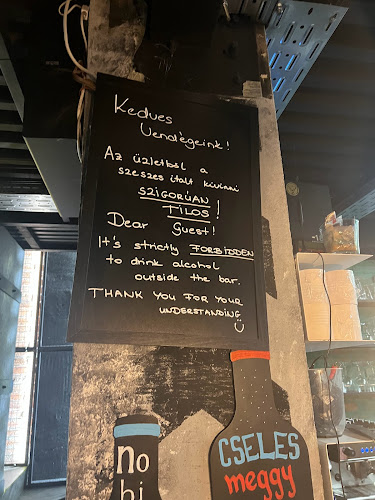 Kedves
Vendégeink!
Az üzletből a
szeszes italt kivinni
SZIGORÚAN
TILOS!
Dear Guest!
It's strictly FORBIDDEN
to drink alcohol
outside the bar.
THANK YOU FOR YOUR
UNDERSTANDING
CSELES
meggy
no
bi